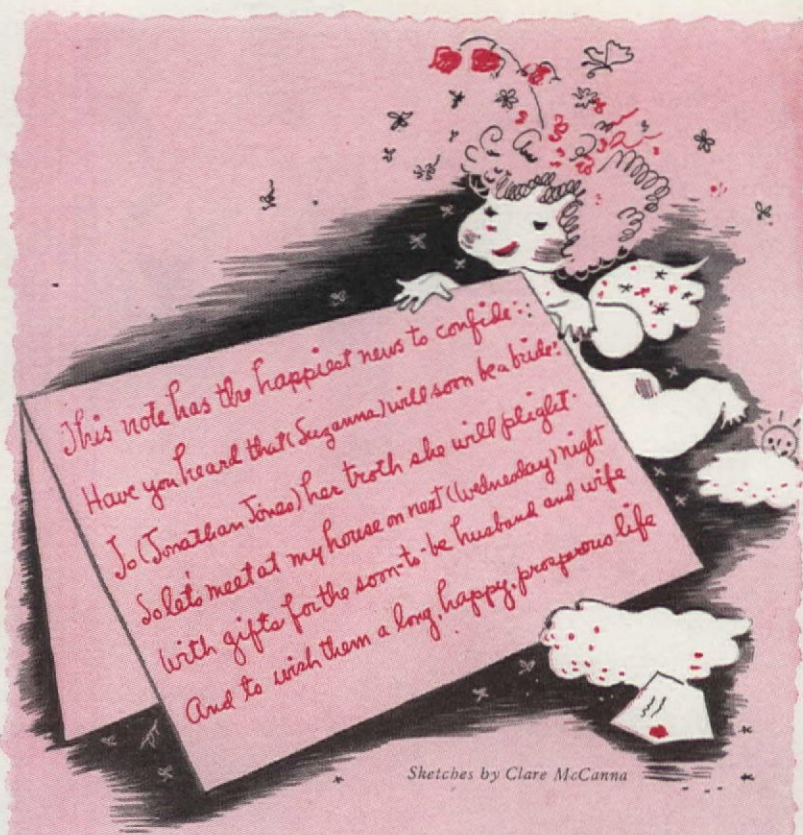 This note has the happiest news to confide:
Have you heard that (Suzanna) will soon be a bride?
To (Jonathan Jones) her troth she will plight.
So let's meet at my house on next (Wednesday) night
with gifts for the soon-to-be husband and wife
And to wish them a long, happy, prosperous life
Sketches by Clare McCanna